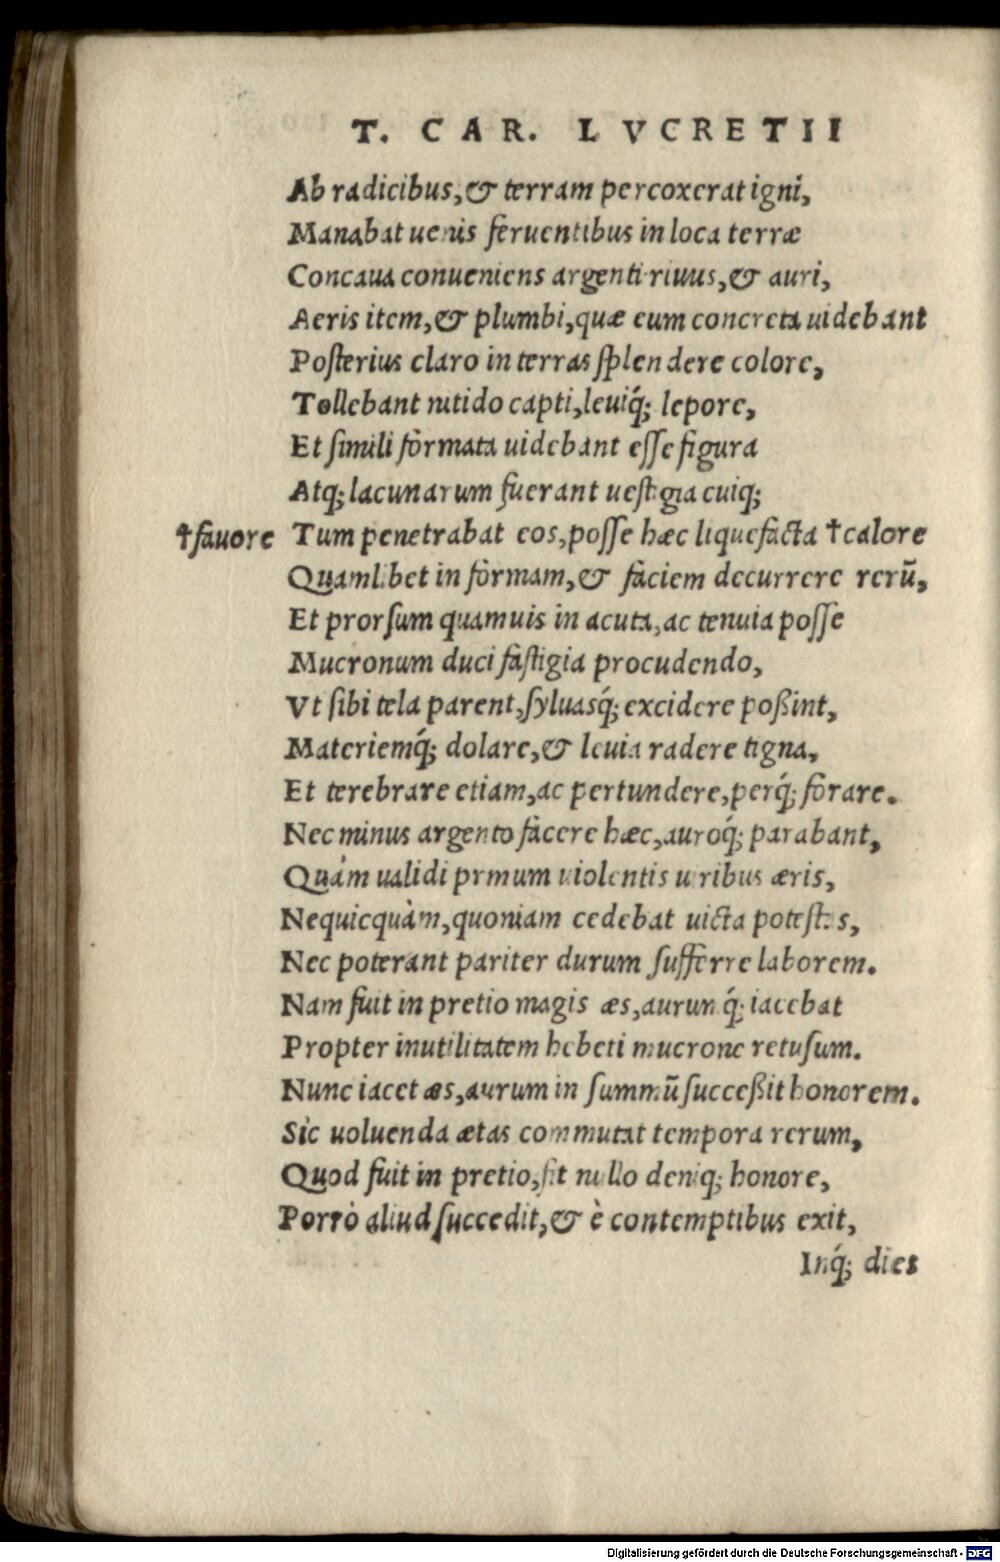 T. CAR. LVCRETII
Ab radicibus, & terram percoxerat igni,
Manabat uenis feruentibus in loca terræ
Concaua conueniens argenti riuus, & auri,
Aeris item, & plumbi, quæ cum concreta uidebant
Posterius claro in terras splendere colore,
Tollebant nitido capti, leuiq́; lepore,
Et simili formata uidebant esse figura
Atq; lacunarum fuerant uestigia cuiq;
†fauore Tum penetrabat eos, posse hæc liquefacta †calore
Quamlibet in formam, & faciem decurrere rerū,
Et prorsum quamuis in acuta, ac tenuia posse
Mucronum duci fastigia procudendo,
Vt sibi tela parent, syluasq́; excidere poßint,
Materiemq́; dolare, & leuia radere tigna,
Et terebrare etiam, ac pertundere, perq́; forare.
Nec minus argento facere hæc, auroq́; parabant,
Quàm ualidi primum uiolentis uiribus æris,
Nequicquàm, quoniam cedebat uicta potestas,
Nec poterant pariter durum sufferre laborem.
Nam fuit in pretio magis æs, aurumq́; iacebat
Propter inutilitatem hebeti mucrone retusum.
Nunc iacet æs, aurum in summū succeßit honorem.
Sic uoluenda ætas commutat tempora rerum,
Quod fuit in pretio, fit nullo deniq; honore,
Porrò aliud succedit, & è contemptibus exit,
Inq́; dies
Digitalisierung gefördert durch die Deutsche Forschungsgemeinschaft - DFG